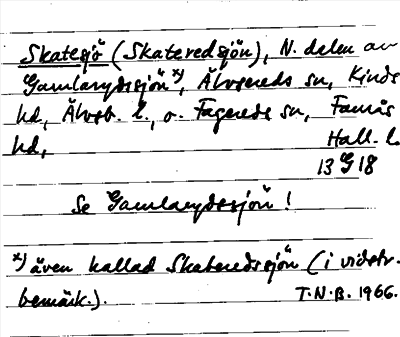 Skatesjö (Skateredsjön), N. delen av
Gamlarydssjön x), Älvsereds sn, Kinds
hd, Älvsb. l., o. Fagereds sn, Faurås
hd, Hall. l.
13 G 18
Se Gamlarydssjön !
x) även kallad Skateredssjön (i vidstr.
bemärk.). T.N.B. 1966.